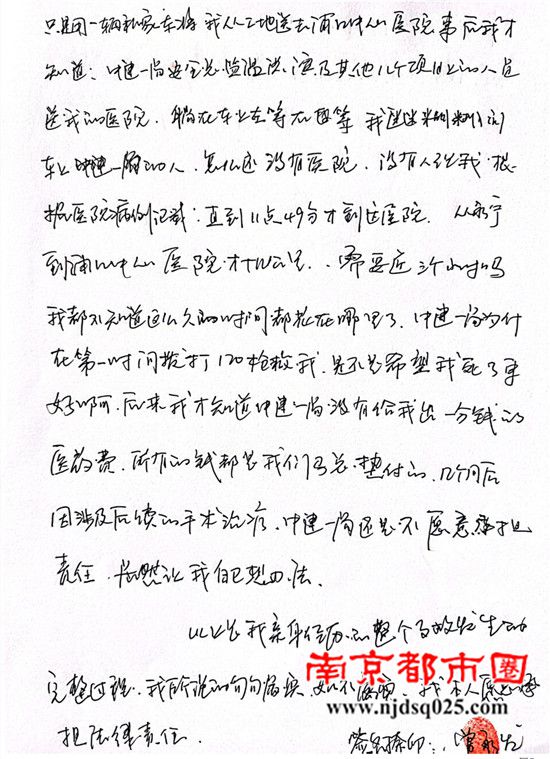 只是用一辆私家车将我从工地送去浦口中心医院事后我才
知道：中建一局安全总监温洪滨及其他几个项目上的人员
送我的医院．躺在车上左等右再等我迷迷糊糊的问
车上中建一局的人，怎么还没有医院，没有人理我．根
据医院病例记载：直到11点49分才到达医院．从永宁
到浦口中心医院才十几公里．．需要近三个小时吗
我都不知道这么久的时间都花在哪里了．中建一局为什
在第一时间拨打120抢救我．是不是希望我死了更
好啊．后来我才知道中建一局没有给我出一分钱的
医药费．所有的钱都是我们马总垫付的．几个月后
因涉及后续的手术治疗．中建一局还是不愿意承担
责任．居然让我自己想办法．
以上是我亲身经历的整个事故发生的
完整过程．我所说的句句属实．如不属实．我本人愿意承
担法律责任．
签名捺印：曾
南京都市圈
www.njdsq025.com